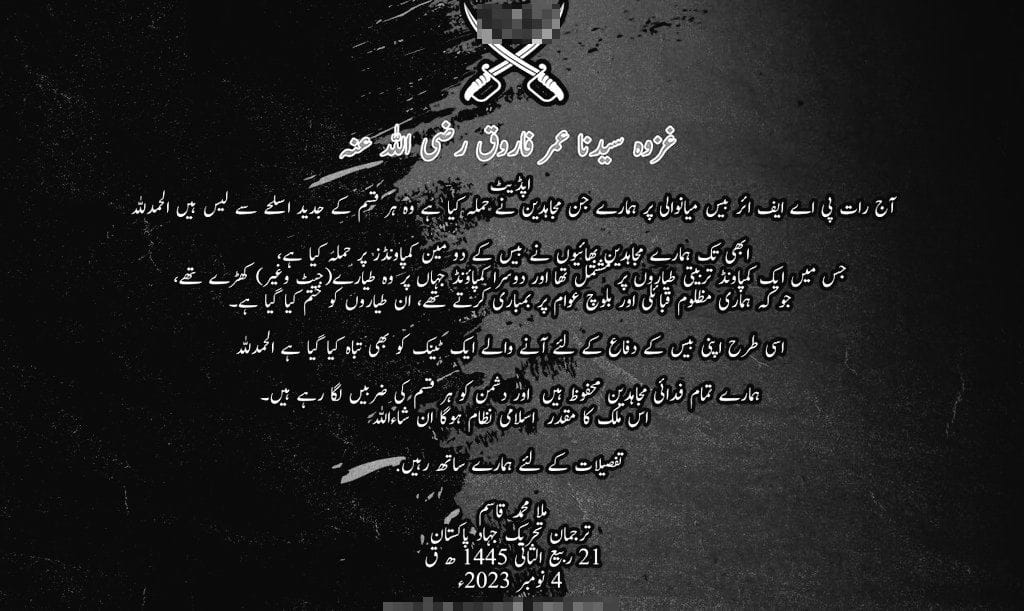 غزوہ سیدنا عمر فاروق رضی اللہ عنہ
اپڈیٹ
آج رات پی اے ایف ائر بیس میانوالی پر ہمارے جن مجاہدین نے حملہ کیا ہے وہ ہر قسم کے جدید اسلحے سے لیس ہیں الحمدللہ
ابھی تک ہمارے مجاہدین بھائیوں نے بیس کے دو مین کمپاونڈز پر حملہ کیا ہے،
جس میں ایک کمپاونڈ تربیتی طیاروں پر مشتمل تھا اور دوسرا کمپاؤنڈ جہاں پر وہ طیارے(جیٹ وغیر) کھڑے تھے،
جو کہ ہماری مظلوم قبائلی اور بلوچ عوام پر بمباری کرتے تھے، ان طیاروں کو ختم کیا گیا ہے۔
اسی طرح اپنی بیس کے دفاع کے لئے آنے والے ایک ٹینک کو بھی تباہ کیا گیا ہے الحمدللہ
ہمارے تمام فدائی مجاہدین محفوظ ہیں اور دشمن کو ہر قسم کی ضربیں لگا رہے ہیں۔
اس ملک کا مقدر اسلامی نظام ہوگا ان شاءاللہ
تفصیلات کے لئے ہمارے ساتھ رہیں.
ملا محمد قاسم
ترجمان تحریک جہاد پاکستان
21 ربیع الثانی 1445 ھ ق
4 نومبر 2023ء